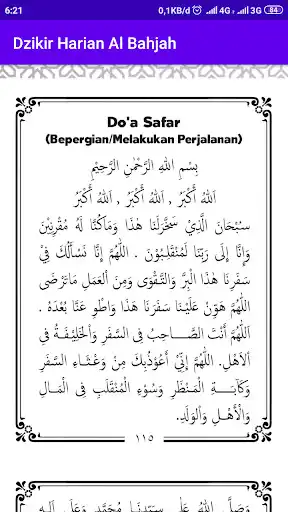 6:21
0,1KB/d 4G 3G 84
Dzikir Harian Al Bahjah
Do'a Safar
(Bepergian/Melakukan Perjalanan)
بِسْمِ اللهِ الرَّحْمٰنِ الرَّحِيْمِ
اَللهُ أَكْبَرُ ، اَللهُ أَكْبَرُ ، اَللهُ أَكْبَرُ
سُبْحَانَ الَّذِيْ سَخَّرَلَنَا هٰذَا وَمَاكُنَّا لَهُ مُقْرِنِيْنَ
وَإِنَّا إِلَى رَبِّنَا لَمُنْقَلِبُوْنَ . اَللّٰهُمَّ إِنَّا نَسْأَلُكَ فِيْ
سَفَرِنَا هٰذَا الْبِرَّ وَالتَّقْوَى وَمِنَ الْعَمَلِ مَاتَرْضَى
اَللّٰهُمَّ هَوِّنْ عَلَيْنَا سَفَرَنَا هٰذَا وَاطْوِ عَنَّا بُعْدَهُ .
اَللّٰهُمَّ أَنْتَ الصَّاحِبُ فِى السَّفَرِ وَالْخَلِيْفَةُ فِى
الْأَهْلِ. اَللّٰهُمَّ إِنِّيْ أَعُوْذُبِكَ مِنْ وَعْثَاءِ السَّفَرِ
وَكَآبَةِ الْمَنْظَرِ وَسُوْءِ الْمُنْقَلَبِ فِى الْمَالِ
وَالْأَهْلِ وَالْوَلَدِ.
١١٥
وَصَلَّى اللهُ عَلَى سَيِّدِنَا مُحَمَّدٍ وَعَلَى آلِهِ